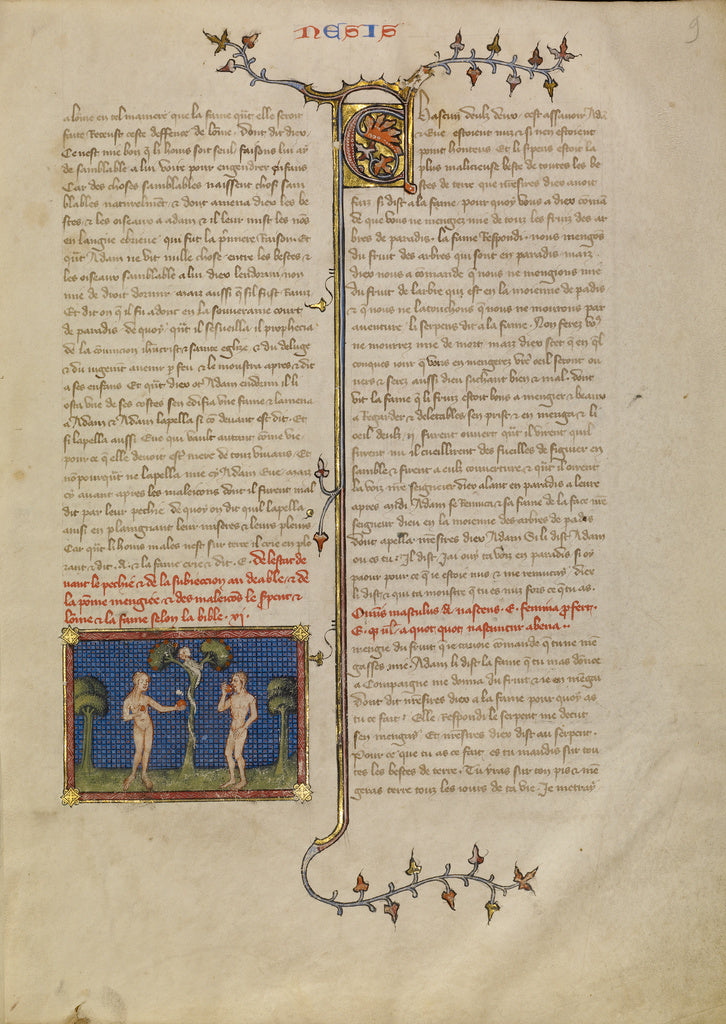 NESIS
9
alome en tel maniere que la fame qut elle seroit
faite Receust ceste deffence de lome. dont dit dieu.
Ce nest mie bon q̄ li homs soit seul faisons lui ay
de samblable a lui voire pour engendrer efans
Car des choses samblables naissent choses sam
blables naturelment & dont amena diex les be
stes & les oiseaux a adam & il leur mist les nōs
en langue ebrieue qui fut la p̄miere Raison. Et
qūt Adam ne vit nulle chose entre les bestes &
les oiseaux samblable a lui diex lendormi non
mie de droit dormir mais aussi q̄ sil fust Raui
Et dit on q̄ il fu adonc en la souueraine court
de paradis. de quoy qūt il sesueilla il prophecia
de la coniunction ihūcrist & sainte eglise & du deluge
& du iugemt auenir p feu & le monstra apres & dit
a ses enfans Et qūt diex ot Adam endormi il li
osta vne de ses costes sen edifia vne fame & lamena
a Adam & Adam lapella si cō deuant est dit. Et
si lapella aussi Eue qui vault autant cōme vie
pour ce q̄ elle deuoit estre mere de touz viuans. Et
nō pourqūt ne lapella mie cy Adam Eue mais
cy auant apres les maleicons dont il furent mal
dit par leur pechie de quoy on dit quil lapella
ainsi en plaingnant leur miseres & leurs pleurs
Car qūt li homs males nest sur terre il crie en plo
rant & dit. A. & la fame crie & dit. E. de lestat de
uant le pechie & de la subieccion au deable & de
la pōme mengiee & des maleicōs le serpent &
lōme & la fame selon la bible. vi.
Chascun deulz deux. cest assauoir Ada
& Eue estoient nuz & si nen estoient
point honteus. Et li serpens estoit la
plus malicieuse beste de toutes les be
stes de terre que nr̄esires diex auoit
faiz si dist a la fame. pour quoy vous a diex comā
de que vous ne mengiez mie de touz les fruiz des ar
bres de paradis. la fame Respondi. nous mengōs
du fruit des arbres qui sont en paradis. mais
diex nous a comande q̄ nous ne mengions mie
du fruit de larbre qui est en la moienne de padis
& q̄ nous ne latouchons q̄ nous ne mourons par
auenture. li serpens dit a la fame. Non ferez vo9
ne mourrez mie de mort. mais diex scet q̄ en ql
conques iour q̄ vous en mengerez vr̄e oeil seront ou
uers & serez aussi dieu sachant bien & mal. dont
vit la fame q̄ li fruiz estoit bons a mengier & beaux
a Regarder & delectables sen prist & en menga & li
oeil deulz .ij. furent ouuert qūt il virent quil
furent nu il cueillirent des fueilles de figuier en
samble & firent a eulz couuerture. & qūt il oirent
la voiz nr̄e seigneur diex alant en paradis a leure
apres midi Adam se remuca & sa fame de la face nr̄e
seigneur dieu en la moienne des arbres de padis
dont apella nr̄esires diex Adam Si li dist Adam
ou es tu. Il dist. Jai ouy ta voiz en paradis si oy
paour pour ce q̄ ie estoie nus & me remucay. diex
li dist & qui ta monstre q̄ tu es nuz fors ce q̄ tu as.
Omīs masculus A. nascens. E. femina pfert.
E. qr̄ ul. a quot quot nascuntur ab eua.
mengie du fruit q̄ ie tauoie comande q̄ tu ne mē
gasses mie. Adam li dist la fame q̄ tu mas dōnee
a Compaigne me donna du fruit & ie en mēgai
dont dist nr̄esires diex a la fame pour quoy as
tu ce fait. Elle Respondi le serpent me deciut
sen mengay. Et nr̄esires diex dist au serpent.
Pour ce que tu as ce fait es tu maudis sur tou
tes les bestes de terre. Tu yras sur ton pis & mē
geras terre touz les iours de ta vie. Je metray